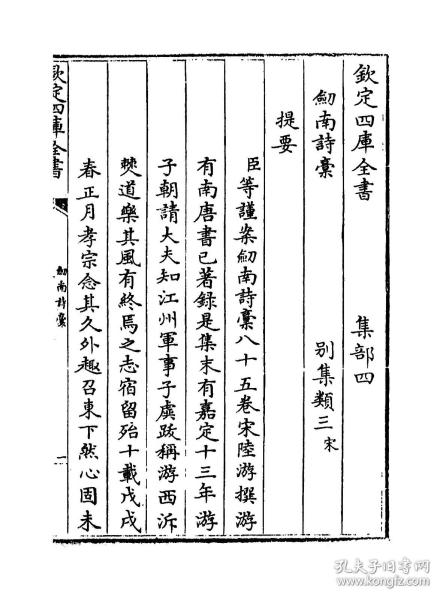 欽定四庫全書　集部四
劒南詩稾　別集類三宋
提要
臣等謹案劒南詩稾八十五卷宋陸游撰游
有南唐書已著錄是集末有嘉定十三年游
子朝請大夫知江州軍事子虡跋稱游西泝
僰道樂其風有終焉之志宿留殆十載戊戌
春正月孝宗念其久外趣召東下然心固未
欽定四庫全書
劒南詩稾
一
孔夫子旧书网
book.kongfz.com